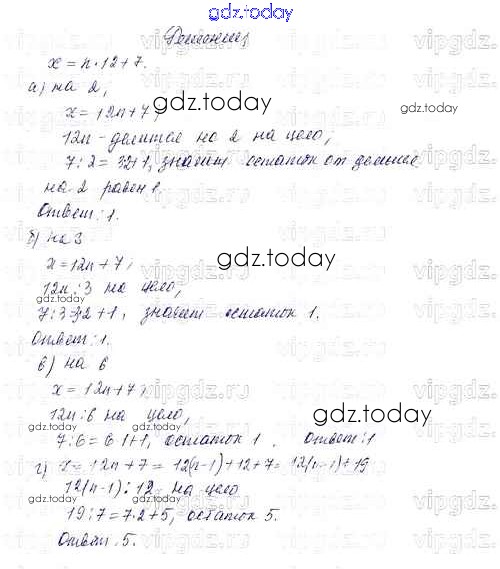 gdz.today
Решение
x = n·12+7.
а) на 2,
x = 12n+7,
gdz.today
12n - делится на 2 на цело,
7:2 = 3·2+1, значит остаток от деления
на 2 равен 1.
Ответ: 1.
б) на 3
gdz.today
x = 12n+7,
12n:3 на цело,
gdz.today
7:3=3·2+1, значит остаток 1.
Ответ: 1.
в) на 6
x = 12n+7,
12n:6 на цело,
gdz.today
gdz.today
7:6 = 6·1+1, остаток 1. Ответ: 1
г) x = 12n+7 = 12(n-1)+12+7 = 12(n-1)+19
12(n-1):12 на цело
gdz.today
19:7=7·2+5, остаток 5.
gdz.today
Ответ: 5.